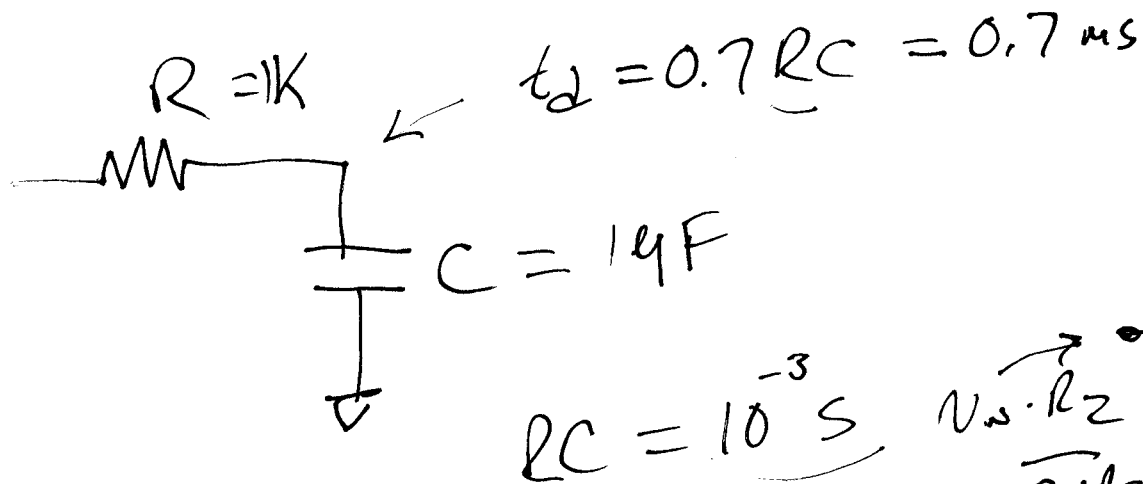 R = 1K
t_d = 0.7 RC = 0.7 ms
C = 1μF
RC = 10^-3 s
R2